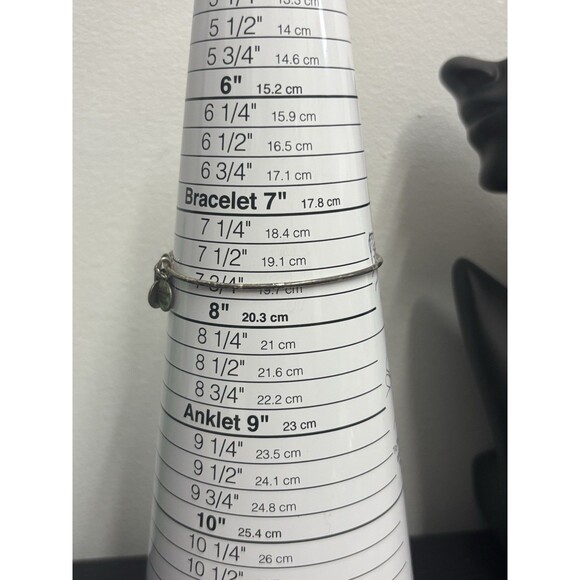 5 1/2" 14 cm
5 3/4" 14.6 cm
6" 15.2 cm
6 1/4" 15.9 cm
6 1/2" 16.5 cm
6 3/4" 17.1 cm
Bracelet 7" 17.8 cm
7 1/4" 18.4 cm
7 1/2" 19.1 cm
7 3/4" 19.7 cm
8" 20.3 cm
8 1/4" 21 cm
8 1/2" 21.6 cm
8 3/4" 22.2 cm
Anklet 9" 23 cm
9 1/4" 23.5 cm
9 1/2" 24.1 cm
9 3/4" 24.8 cm
10" 25.4 cm
10 1/4" 26 cm
10 1/2"